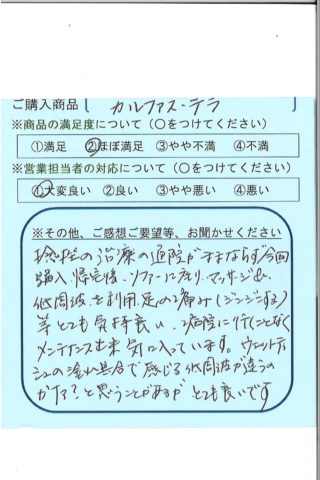 ご購入商品 カルファス・テラ
※商品の満足度について（○をつけてください）
①満足 ②ほぼ満足 ③やや不満 ④不満
※営業担当者の対応について（○をつけてください）
①大変良い ②良い ③やや悪い ④悪い
※その他、ご感想ご要望等、お聞かせください
捻挫の治療の通院がままならず今回
購入、帰宅後、ソファーに座り、マッサージ&
低周波を利用、足の痛み(ジンジンする)
等とても気持良い、病院に行くことなく
メンテナンス出来気に入っています。ウェットティ
シュの濡れ具合で感じる低周波が違うの
かな？と思うことがあるが とても良いです